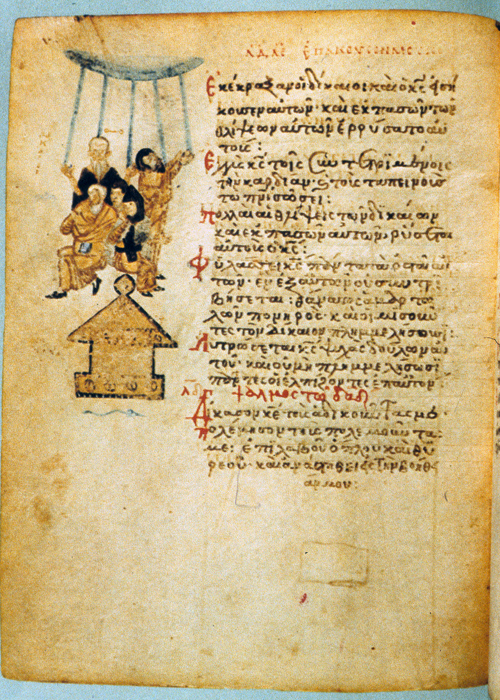 Ἐκέκραξαν οἱ δίκαιοι καὶ ὁ κς εἰσή
κουσεν αὐτῶν· καὶ ἐκ πασῶν τῶν
θλίψεων αὐτῶν ἐρρύσατο αὐ
τούς:
Ἐγγὺς κς τοῖς συντετριμμένοις
τὴν καρδίαν· καὶ τοὺς ταπεινοὺς
τῷ πνι σώσει:
Πολλαὶ αἱ θλίψεις τῶν δικαίων
καὶ ἐκ πασῶν αὐτῶν ῥύσεται
αὐτοὺς ὁ κς:
Φυλάσσει κς πάντα τὰ ὀστᾶ αὐ
τῶν· ἓν ἐξ αὐτῶν οὐ συντρι
βήσεται: θάνατος ἁμαρτω
λῶν πονηρός· καὶ οἱ μισοῦν
τες τὸν δίκαιον πλημμελήσουσι:
Λυτρώσεται κς ψυχὰς δούλων αὐ
τοῦ· καὶ οὐ μὴ πλημμελήσωσι
πάντες οἱ ἐλπίζοντες ἐπ' αὐτόν:
ψαλμὸς τῷ δαδ
Δίκασον κε τοὺς ἀδικοῦντάς με·
πολέμησον τοὺς πολεμοῦντάς
με: ἐπιλαβοῦ ὅπλου καὶ θυ
ρεοῦ· καὶ ἀνάστηθι εἰς τὴν βοήθει
αν μου: